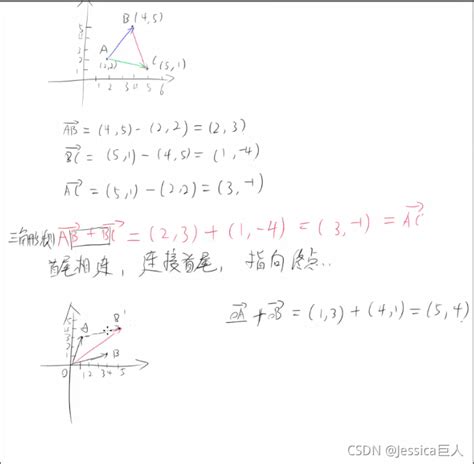 B(4,5)
A
(2,2)
C(5,1)
5
4
3
2
1
1 2 3 4 5 6
AB = (4,5) - (2,2) = (2,3)
BC = (5,1) - (4,5) = (1,-4)
AC = (5,1) - (2,2) = (3,-1)
三角形则 AB + BC = (2,3) + (1,-4) = (3,-1) = AC
首尾相连，连接首尾，指向终点...
OA + OB = (1,3) + (4,1) = (5,4)
A
B'
B
O
1 2 3 4 5
CSDN @Jessica巨人